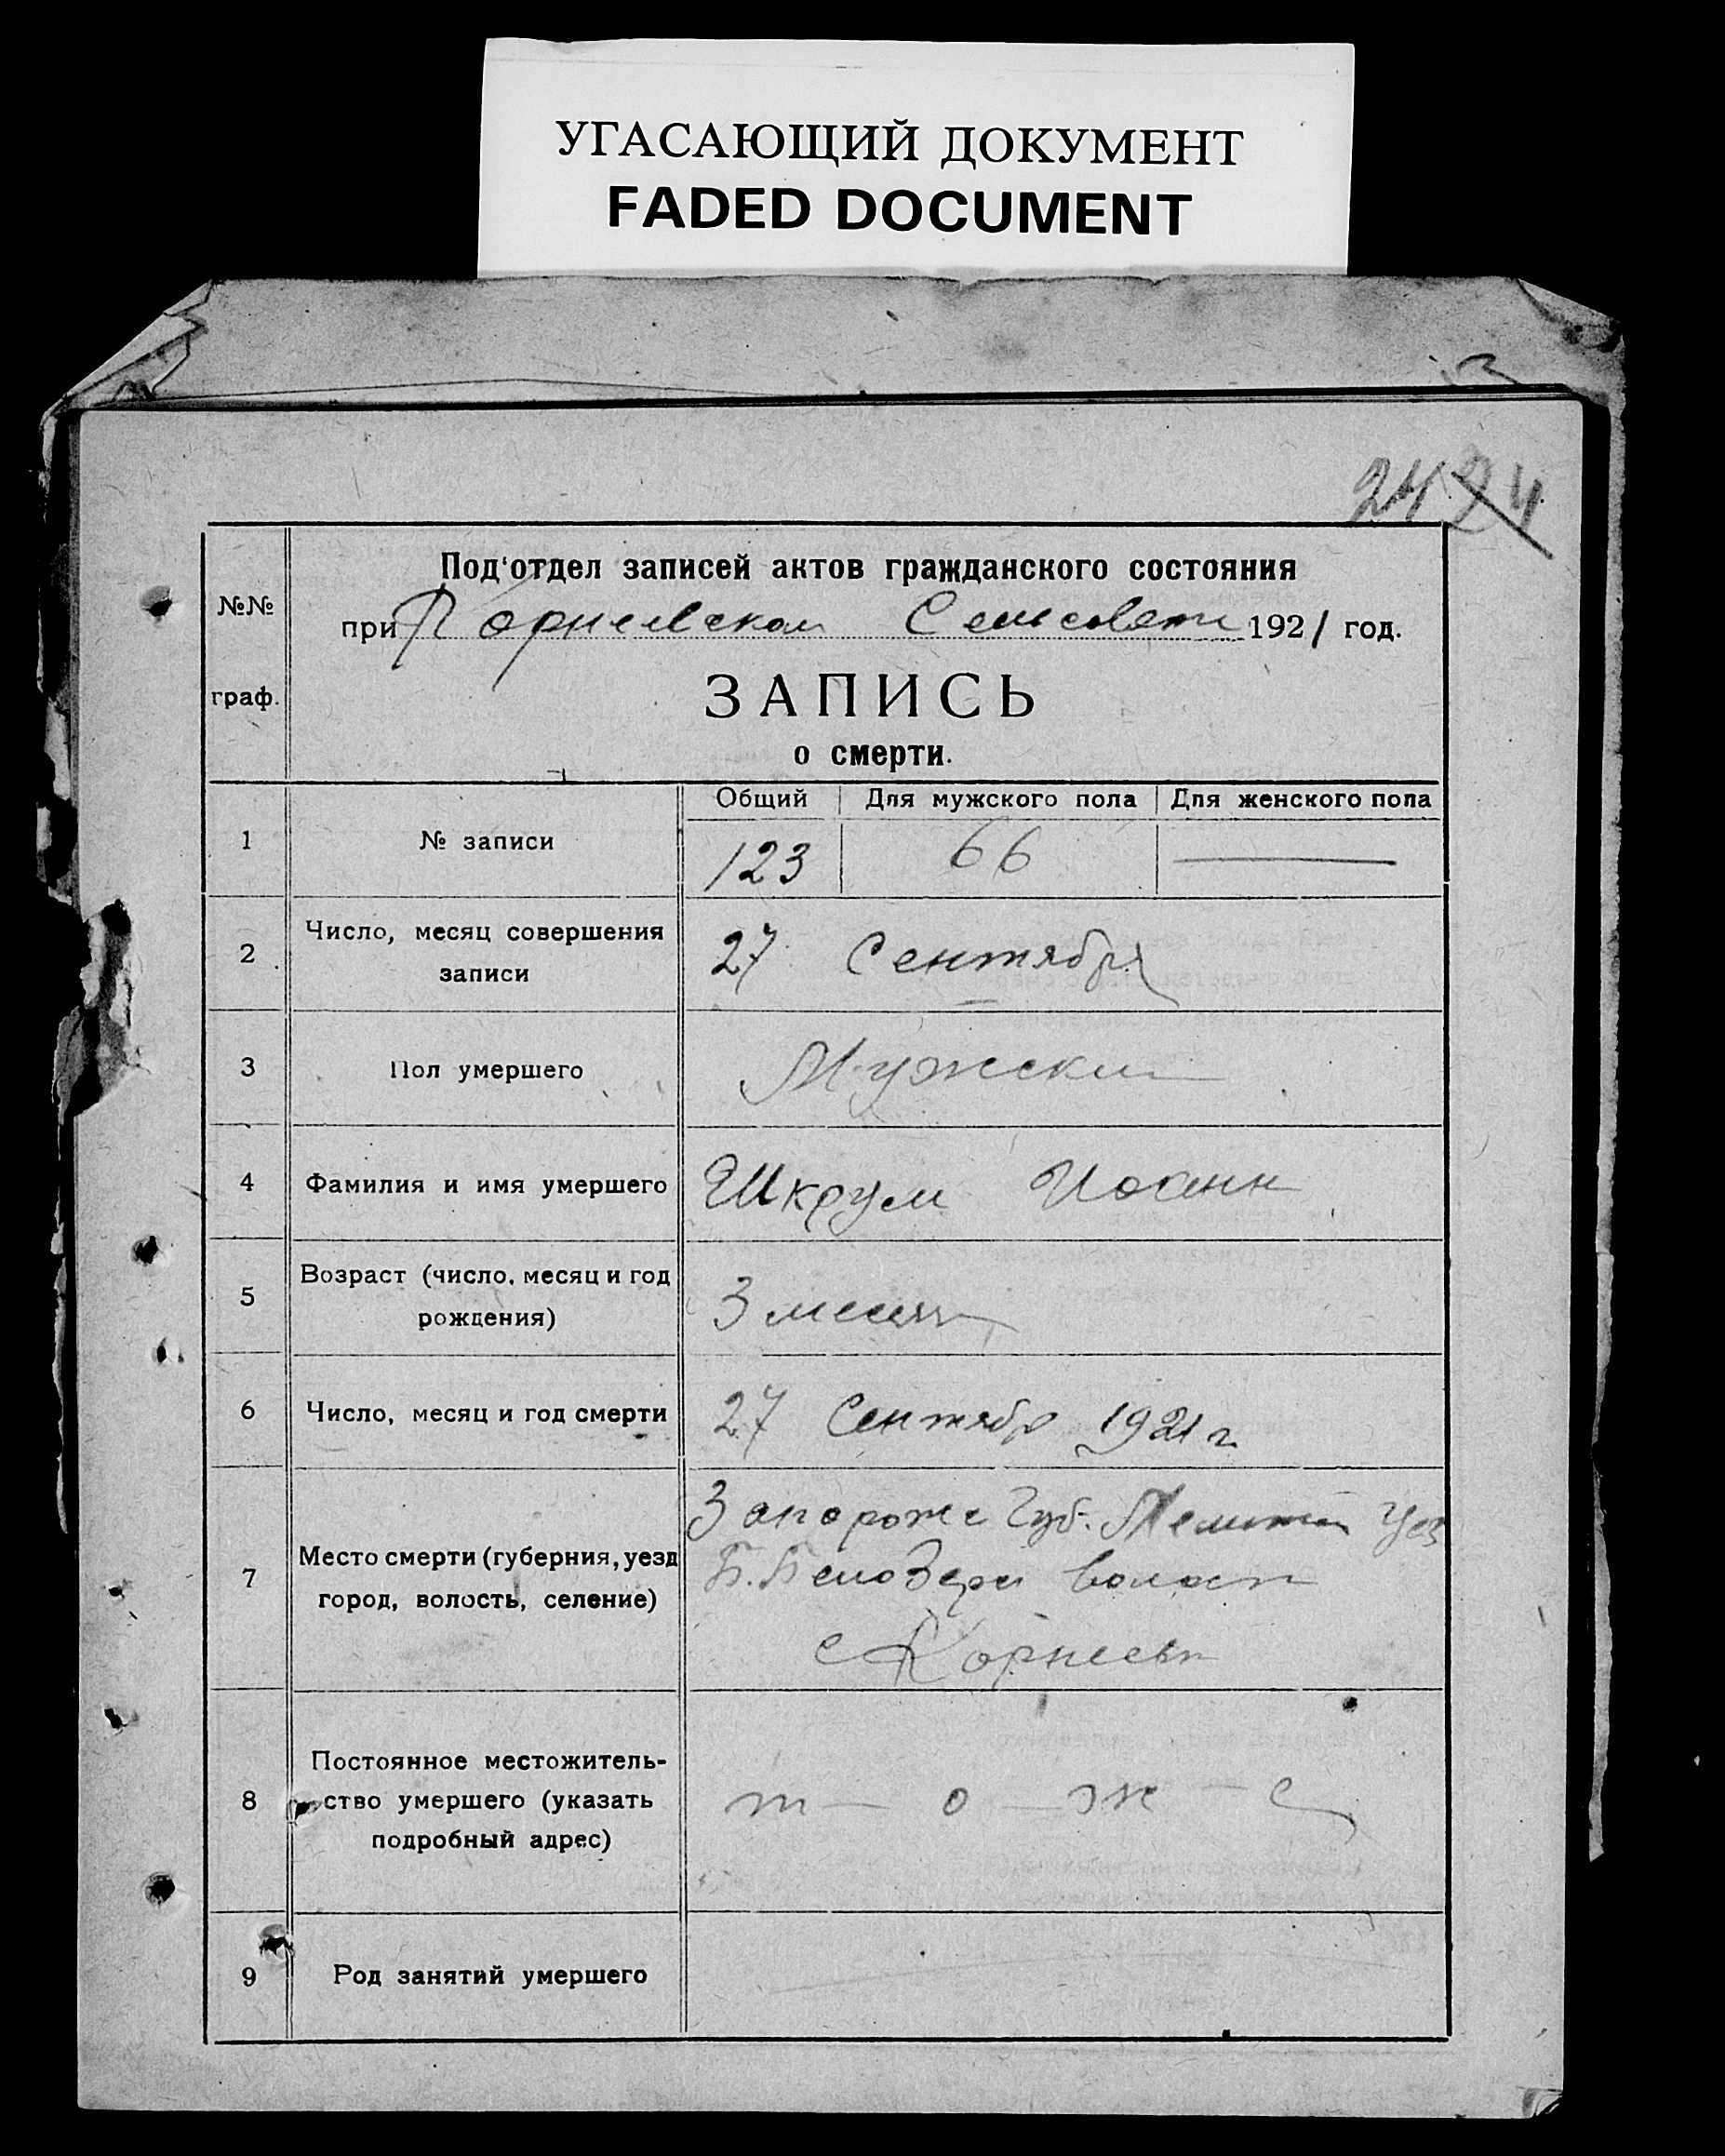 УГАСАЮЩИЙ ДОКУМЕНТ
FADED DOCUMENT
24 24
Под‘отдел записей актов гражданского состояния
№№
при Корнеевском Сельсовете 1921 год.
граф.
ЗАПИСЬ
о смерти.
Общий Для мужского пола Для женского пола
1 № записи 123 66 —
2 Число, месяц совершения
записи
27 Сентября
3 Пол умершего Мужски
4 Фамилия и имя умершего Шкрум Иоанн
5 Возраст (число, месяц и год
рождения)
3 месяц
6 Число, месяц и год смерти 27 Сентябр 1921 г.
7 Место смерти (губерния, уезд
город, волость, селение)
Запороже Губ. Уез
Б. Белозерс волост
с Корнеевк
8 Постоянное местожитель-
ство умершего (указать
подробный адрес)
т — о — ж — е
9 Род занятий умершего